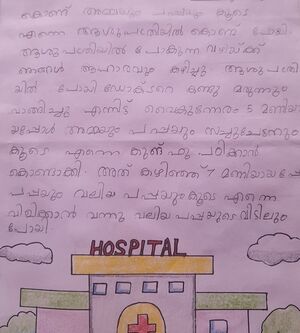 കൊണ്ട് അമ്മയും പപ്പയും കൂടെ
എന്നെ ആശുപത്രിയിൽ കൊണ്ട് പോയി.
ആശുപത്രിയിൽ പോകുന്ന വഴിയ്ക്ക്
ഞങ്ങൾ ആഹാരവും കഴിച്ചു ആശുപത്രി
യിൽ പോയി ഡോക്ടറെ കണ്ടു മരുന്നും
വാങ്ങിച്ചു എന്നിട്ട് വൈകുന്നേരം 5 മണിയാ
യപ്പോൾ അമ്മയും പപ്പയും സച്ചുചേട്ടനും
കൂടെ എന്നെ കുങ് ഫു പഠിക്കാൻ
കൊണ്ടാക്കി. അത് കഴിഞ്ഞ് 7 മണിയായപ്പോ
പപ്പയും വലിയ പപ്പയുംകൂടെ എന്നെ
വിളിക്കാൻ വന്നു വലിയ പപ്പയുടെ വീട്ടിലും
പോയി.
HOSPITAL